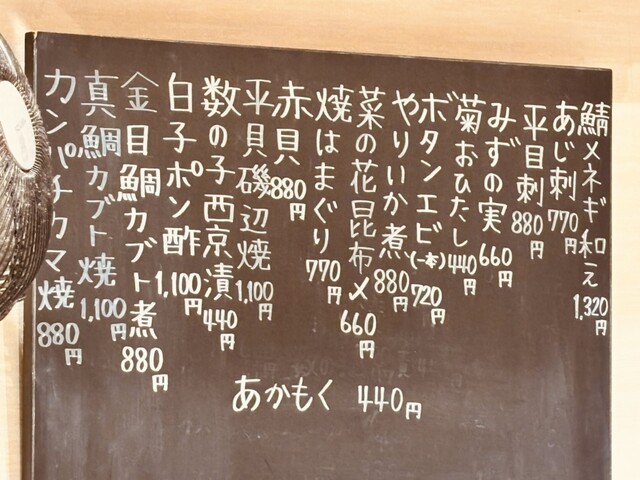 鯖メネギ和え 1,320円
あじ刺 770円
平目刺 880円
みずの実 660円
菊おひたし 440円
ボタンエビ(一本) 720円
やりいか煮 880円
菜の花昆布〆 660円
焼はまぐり 770円
赤貝 880円
平貝磯辺焼 1,100円
数の子西京漬 440円
白子ポン酢 1,100円
金目鯛カブト煮 880円
真鯛カブト焼 1,100円
カンパチカマ焼 880円
あかもく 440円